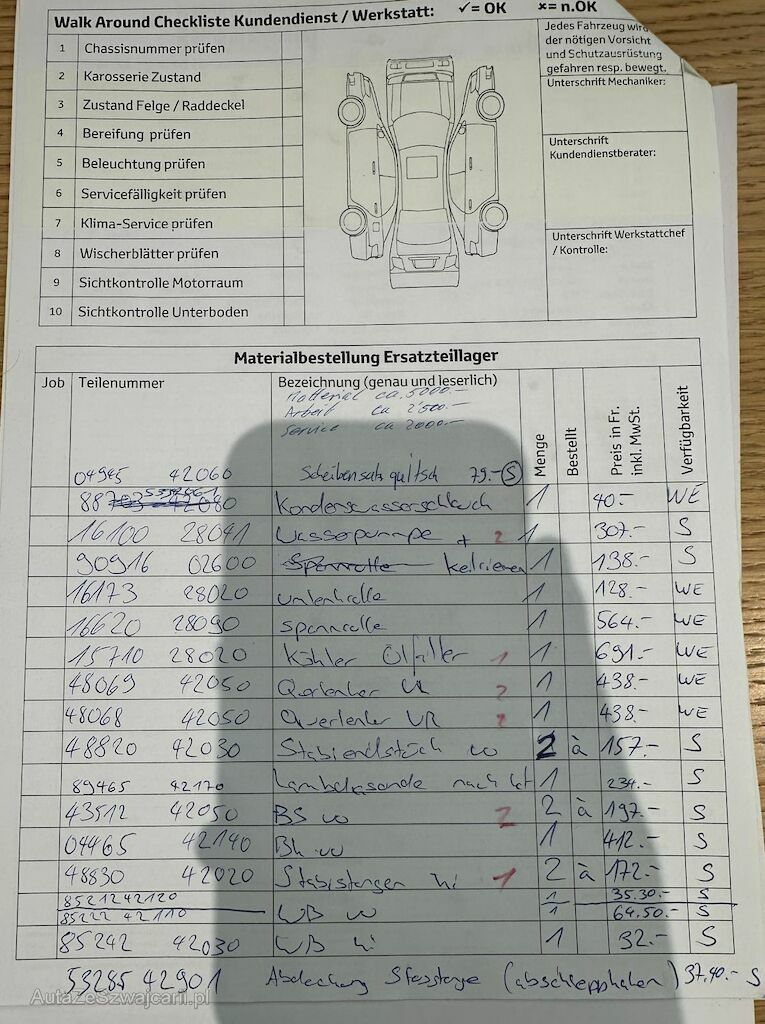 Walk Around Checkliste Kundendienst / Werkstatt: ✓= OK ×= n.OK
1 Chassisnummer prüfen
2 Karosserie Zustand
3 Zustand Felge / Raddeckel
4 Bereifung prüfen
5 Beleuchtung prüfen
6 Servicefälligkeit prüfen
7 Klima-Service prüfen
8 Wischerblätter prüfen
9 Sichtkontrolle Motorraum
10 Sichtkontrolle Unterboden
Jedes Fahrzeug wird
der nötigen Vorsicht
und Schutzausrüstung
gefahren resp. bewegt.
Unterschrift Mechaniker:
Unterschrift
Kundendienstberater:
Unterschrift Werkstattchef
/ Kontrolle:
Materialbestellung Ersatzteillager
Job Teilenummer Bezeichnung (genau und leserlich) Menge Bestellt Preis in Fr. inkl. MwSt. Verfügbarkeit
Material ca. 5000.-
Arbeit ca 2'500.-
Service ca 2000.-
04945 42060 Scheibensatz quitsch 79.- S
Kondenswasserschlauch 1 40.- WE
16100 28041 Wasserpumpe + 2 1 307.- S
90916 02600 Keilriemen 1 138.- S
16173 28020 umlenkrolle 1 128.- WE
16620 28090 spannrolle 1 564.- WE
15710 28020 Kühler Ölfilter 1 1 691.- WE
48069 42050 Querlenker UL 2 1 438.- WE
48068 42050 Querlenker UR 2 1 438.- WE
48820 42030 vo 2 à 157.- S
89465 42170 Lambdasonde nach Kat 1 234.- S
43512 42050 BS vo 2 2 à 197.- S
04465 42140 Bk vo 1 412.- S
48830 42020 Stabistangen hi 1 2 à 172.- S
85212 42120 1 35.30.- S
85222 42110 WB vo 1 64.50.- S
85242 42030 WB hi 1 32.- S
53285 42901 Abdeckung Stosstange (abschlepphaken) 37.40.- S
AutazeSzwajcarii.pl